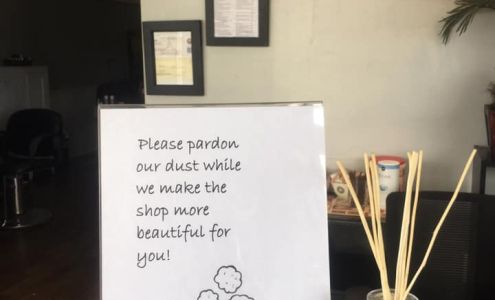 Please pardon
our dust while
we make the
shop more
beautiful for
you!